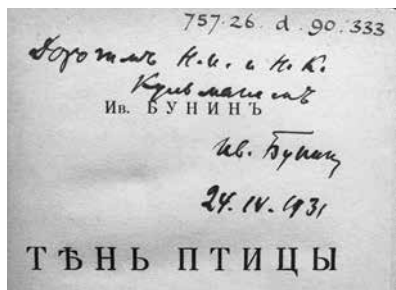 757.26.d.90.333
Дорогимъ Н. И. и Н. К.
Кульманамъ
Ив. БУНИНЪ
Ив. Бунин
24. IV. 1931
ТѢНЬ ПТИЦЫ